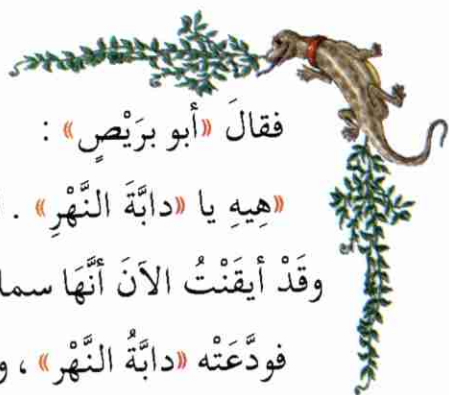 فقالَ «أبو برَيْصٍ» :
«هِيهِ يا «دابَّةَ النَّهْرِ» .
وقَدْ أيقَنْتُ الآنَ أنَّهَا
فودَّعَتْه «دابَّةُ النَّهْر» ،